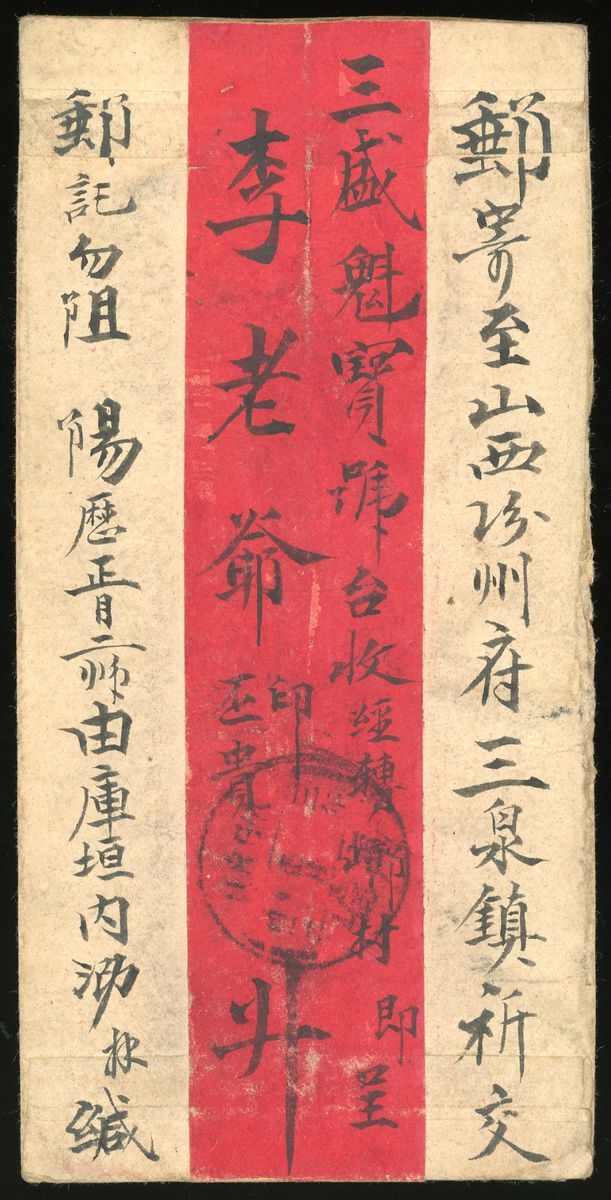 郵寄至山西汾州府三泉鎮祈交
三盛魁寶號台收經轉鄉村即呈
李老爺印丕貴升
郵託勿阻 陽歷正月二師由庫垣內泐林緘